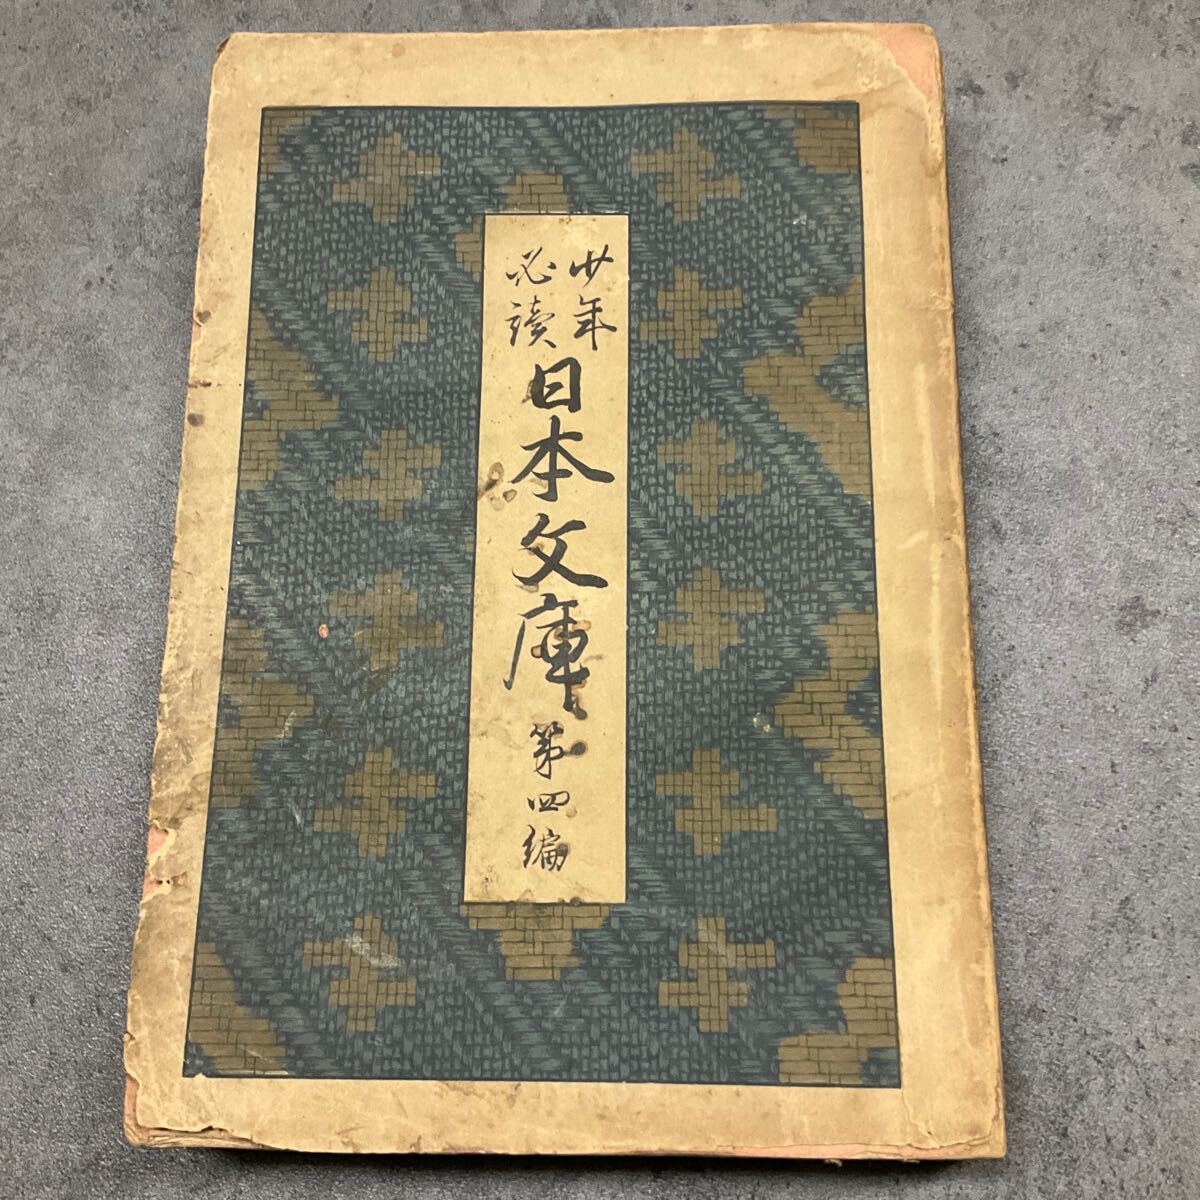 少年
必讀
日本文庫
第四編